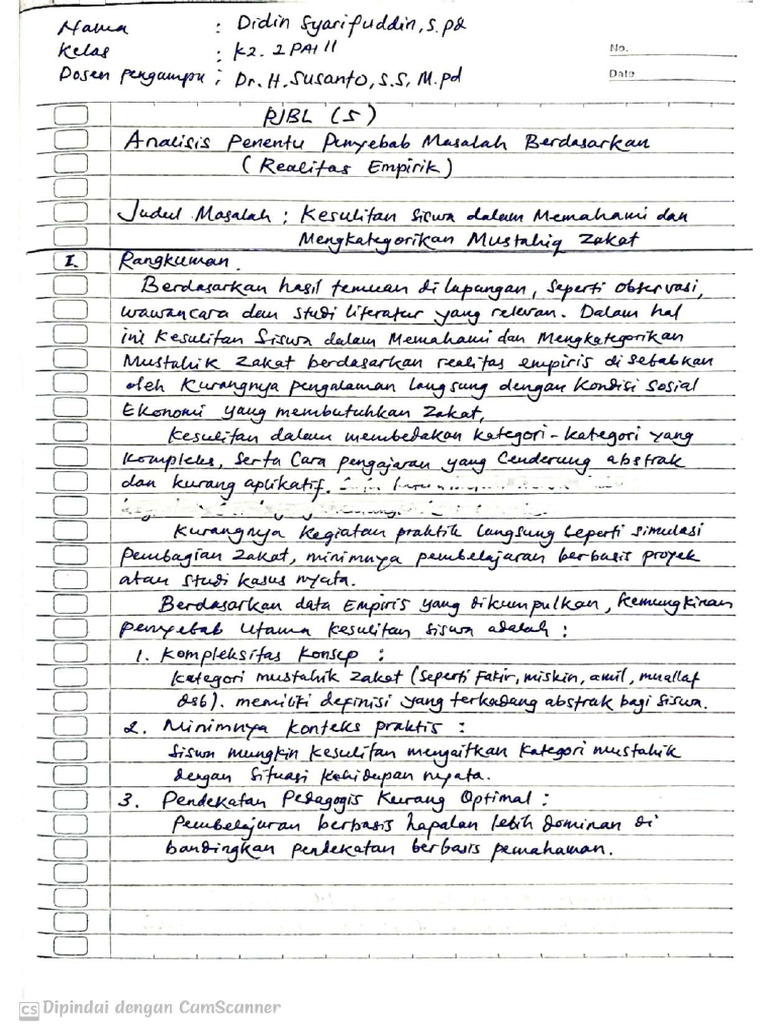 Nama : Didin Syarifuddin, S.pd
Kelas : K2. 2 PAI II
Dosen pengampu : Dr. H. Susanto, S.S, M.pd
No.
Date
PJBL (5)
Analisis Penentu Penyebab Masalah Berdasarkan
(Realitas Empirik)
Judul Masalah : Kesulitan Siswa dalam Memahami dan
Mengkategorikan Mustahiq Zakat
I. Rangkuman.
Berdasarkan hasil temuan di lapangan, seperti observasi,
wawancara dan studi literatur yang relevan. Dalam hal
ini Kesulitan Siswa dalam Memahami dan Mengkategorikan
Mustahik Zakat berdasarkan realitas empiris di sebabkan
oleh Kurangnya pengalaman langsung dengan kondisi sosial
Ekonomi yang membutuhkan Zakat,
Kesulitan dalam membedakan kategori-kategori yang
kompleks, serta Cara pengajaran yang Cenderung abstrak
dan kurang aplikatif.
Kurangnya kegiatan praktik langsung seperti simulasi
Pembagian Zakat, minimnya pembelajaran berbasis proyek
atau studi kasus nyata.
Berdasarkan data Empiris yang dikumpulkan, kemungkinan
penyebab Utama kesulitan siswa adalah :
1. Kompleksitas Konsep :
Kategori mustahik zakat (seperti Fakir, miskin, amil, muallaf
dsb). memiliki definisi yang terkadang abstrak bagi siswa.
2. Minimnya konteks praktis :
Siswa mungkin kesulitan mengaitkan kategori mustahik
dengan situasi kehidupan nyata.
3. Pendekatan Pedagogis Kurang Optimal :
Pembelajaran berbasis hapalan lebih dominan di
bandingkan pendekatan berbasis pemahaman.
CS Dipindai dengan CamScanner